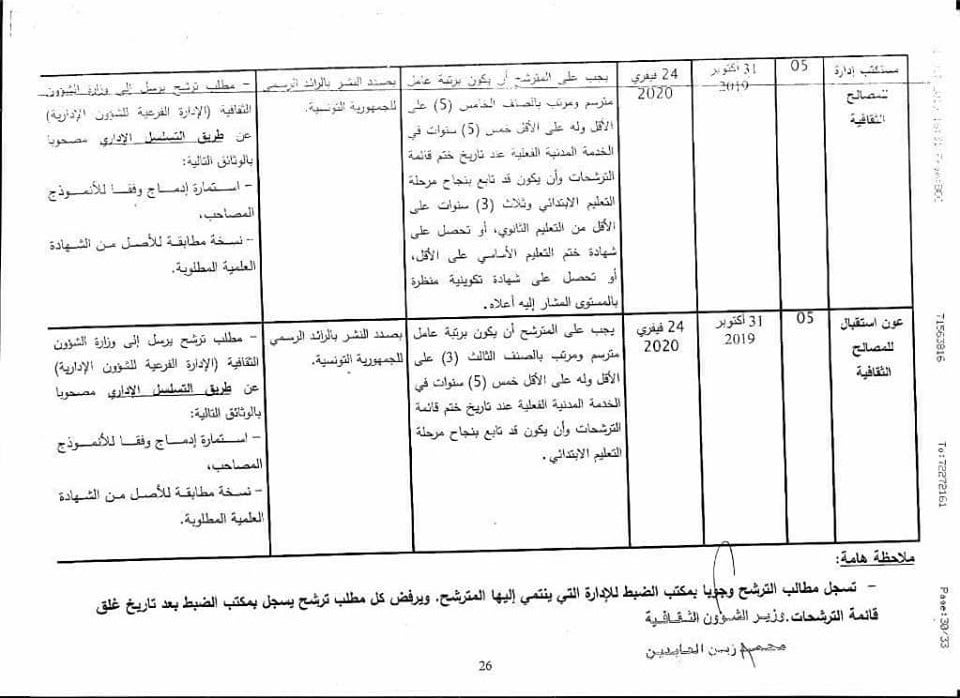 مستكتب إدارة
للمصالح
الثقافية
05
31 أكتوبر
2019
24 فيفري
2020
يجب على المترشح أن يكون برتبة عامل
مترسم ومرتب بالصنف الخامس (5) على
الأقل وله على الأقل خمس (5) سنوات في
الخدمة المدنية الفعلية عند تاريخ ختم قائمة
الترشحات وأن يكون قد تابع بنجاح مرحلة
التعليم الابتدائي وثلاث (3) سنوات على
الأقل من التعليم الثانوي، أو تحصل على
شهادة ختم التعليم الأساسي على الأقل،
أو تحصل على شهادة تكوينية منظرة
بالمستوى المشار إليه أعلاه.
بصدد النشر بالرائد الرسمي
للجمهورية التونسية.
- مطلب ترشح يرسل إلى وزارة الشؤون
الثقافية (الإدارة الفرعية للشؤون الإدارية)
عن طريق التسلسل الإداري مصحوبا
بالوثائق التالية:
- استمارة إدماج وفقا للأنموذج
المصاحب،
- نسخة مطابقة للأصل من الشهادة
العلمية المطلوبة.
عون استقبال
للمصالح
الثقافية
05
31 أكتوبر
2019
24 فيفري
2020
يجب على المترشح أن يكون برتبة عامل
مترسم ومرتب بالصنف الثالث (3) على
الأقل وله على الأقل خمس (5) سنوات في
الخدمة المدنية الفعلية عند تاريخ ختم قائمة
الترشحات وأن يكون قد تابع بنجاح مرحلة
التعليم الابتدائي.
بصدد النشر بالرائد الرسمي
للجمهورية التونسية.
- مطلب ترشح يرسل إلى وزارة الشؤون
الثقافية (الإدارة الفرعية للشؤون الإدارية)
عن طريق التسلسل الإداري مصحوبا
بالوثائق التالية:
- استمارة إدماج وفقا للأنموذج
المصاحب،
- نسخة مطابقة للأصل من الشهادة
العلمية المطلوبة.
ملاحظة هامة:
- تسجل مطالب الترشح وجوبا بمكتب الضبط للإدارة التي ينتمي إليها المترشح. ويرفض كل مطلب ترشح يسجل بمكتب الضبط بعد تاريخ غلق
قائمة الترشحات.
وزير الشؤون الثقافية
محمد زين العابدين
26
71563816
To:72272161
Page:30/33